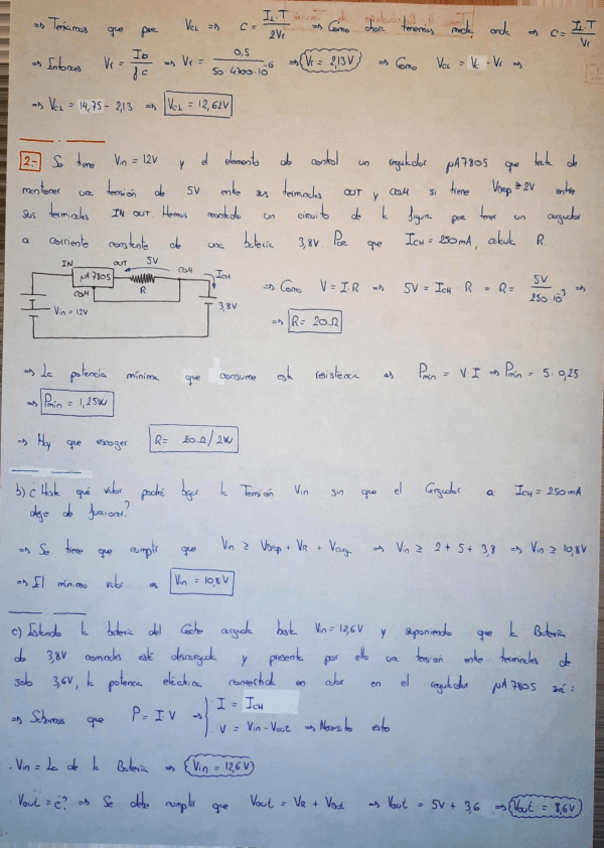 ⇒ Teníamos que para VCL ⇒ C = IL·T / 2Vr ⇒ Como ahora tenemos media onda ⇒ C = IL·T / Vr
⇒ Entonces Vr = IO / f·C ⇒ Vr = 0,5 / 50·4700·10⁻⁶ ⇒ Vr = 2,13V ⇒ Como VCL = VC - Vr ⇒
⇒ VCL = 14,75 - 2,13 ⇒ VCL = 12,62V
2.- Se tiene Vin = 12V y el elemento de control un regulador µA7805 que trata de
mantener una tensión de 5V entre sus terminales OUT y COM si tiene Vdrop ≥ 2V entre
sus terminales IN OUT. Hemos montado un circuito de la figura para tener un cargador
a corriente constante de una batería 3,8V. Para que ICH = 250mA, calcula R.
IN µA7805 OUT 5V COM ICH
COM R 3,8V
Vin = 12V
⇒ Como V = I·R ⇒ 5V = ICH · R = R = 5V / 250·10⁻³ ⇒
⇒ R = 20Ω
⇒ La potencia mínima que consume esta resistencia es Pmín = V·I ⇒ Pmín = 5·0,25
⇒ Pmín = 1,25W
⇒ Hay que escoger R = 20Ω/2W
b) ¿Hasta qué valor podrá bajar la Tensión Vin sin que el Cargador a ICH = 250mA
deje de funcionar?
⇒ Se tiene que cumplir que Vin ≥ Vdrop + VR + Vcarga ⇒ Vin ≥ 2 + 5 + 3,8 ⇒ Vin ≥ 10,8V
⇒ El mínimo valor es Vin = 10,8V
c) Estando la batería del Coche cargada hasta Vin = 12,6V y suponiendo que la Batería
de 3,8V nominales está descargada y presenta por ello una tensión entre terminales de
solo 3,6V, la potencia eléctrica convertida en calor en el regulador µA7805 será:
⇒ Sabemos que P = I·V ⇒ { · I = ICH
· V = Vin - Vout ⇒ Necesito esto
· Vin = La de la Batería ⇒ Vin = 12,6V
· Vout = ¿? ⇒ Se debe cumplir que Vout = VR + Vbat ⇒ Vout = 5V + 3,6 ⇒ Vout = 8,6V